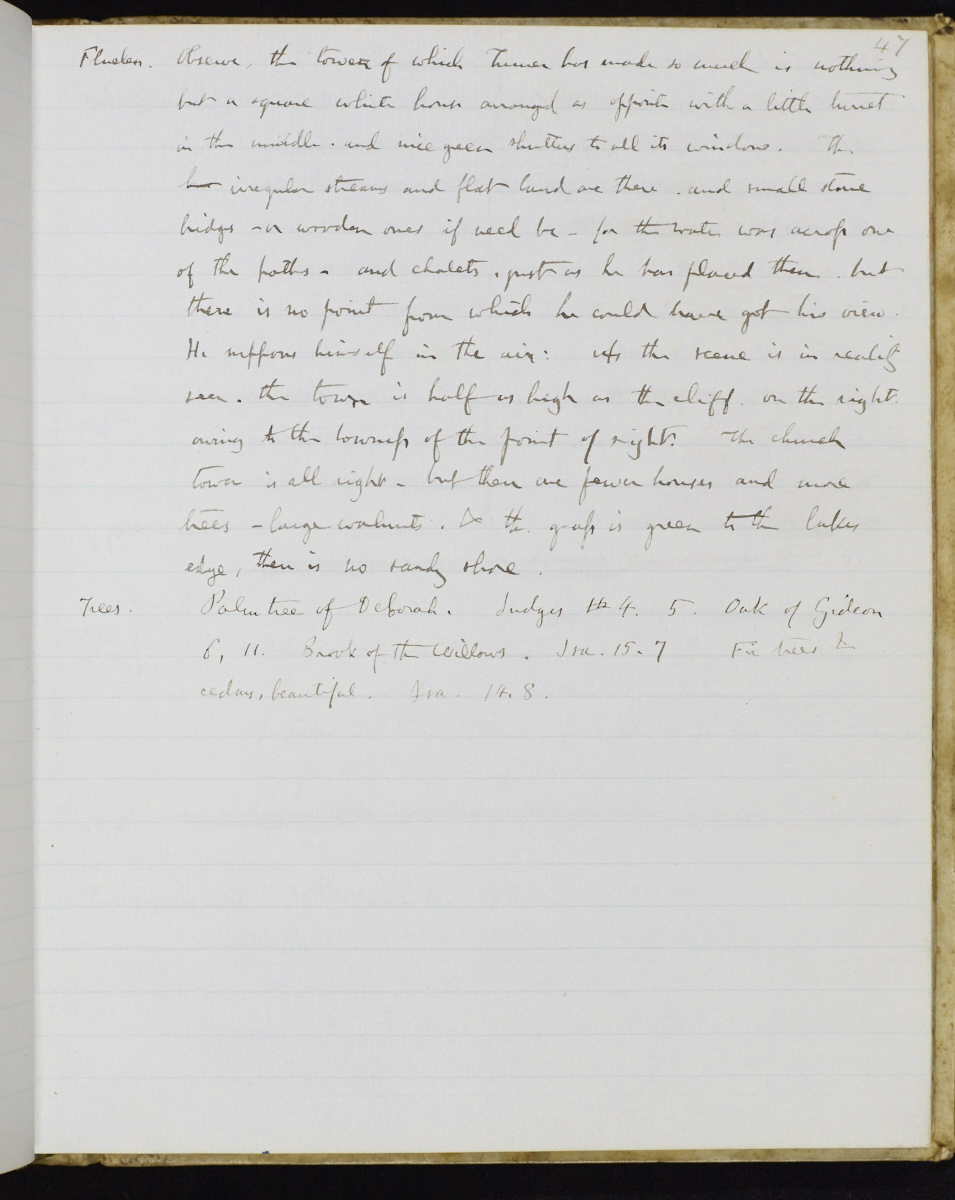 47
Fluelen. Observe, the tower of which Turner has made so much is nothing
but a square white house arranged as opposite with a little turret
in the middle. and nice green shutters to all its windows. The
irregular streams and flat land are there. and small stone
bridges - or wooden ones if need be - for the water was acroſs one
of the paths - and chalets, just as he has placed them. but
there is no point from which he could have got his view.
He supposes himself in the air: As the scene is in reality
seen. the tower is half as high as the cliff. on the right.
owing to the lowneſs of the point of sight. The church
tower is all right - but there are fewer houses and more
trees - large walnuts. & the graſs is green to the lakes
edge, there is no sandy shore.
Trees. Palm tree of Deborah. Judges 4. 5. Oak of Gideon
6, 11. Brook of the Willows. Isa. 15. 7 Fir trees &
cedars, beautiful. Isa. 14. 8.